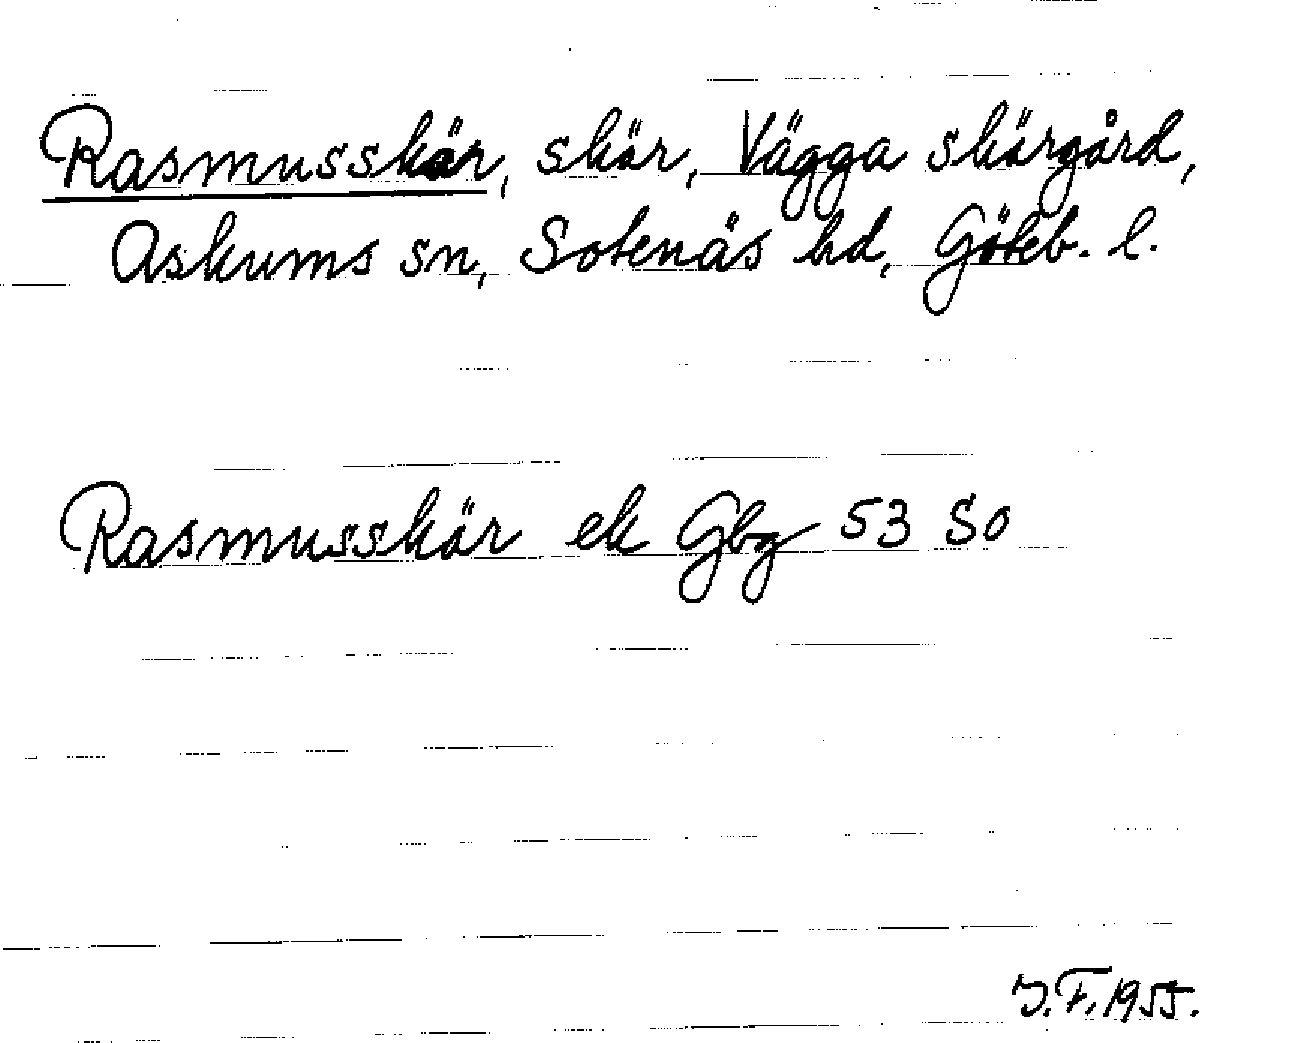 Rasmusskär, skär, Vägga skärgård,
Askums sn, Sotenäs hd, Göteb. l.
Rasmusskär ek Gbg 53 SO
J.F. 1955.